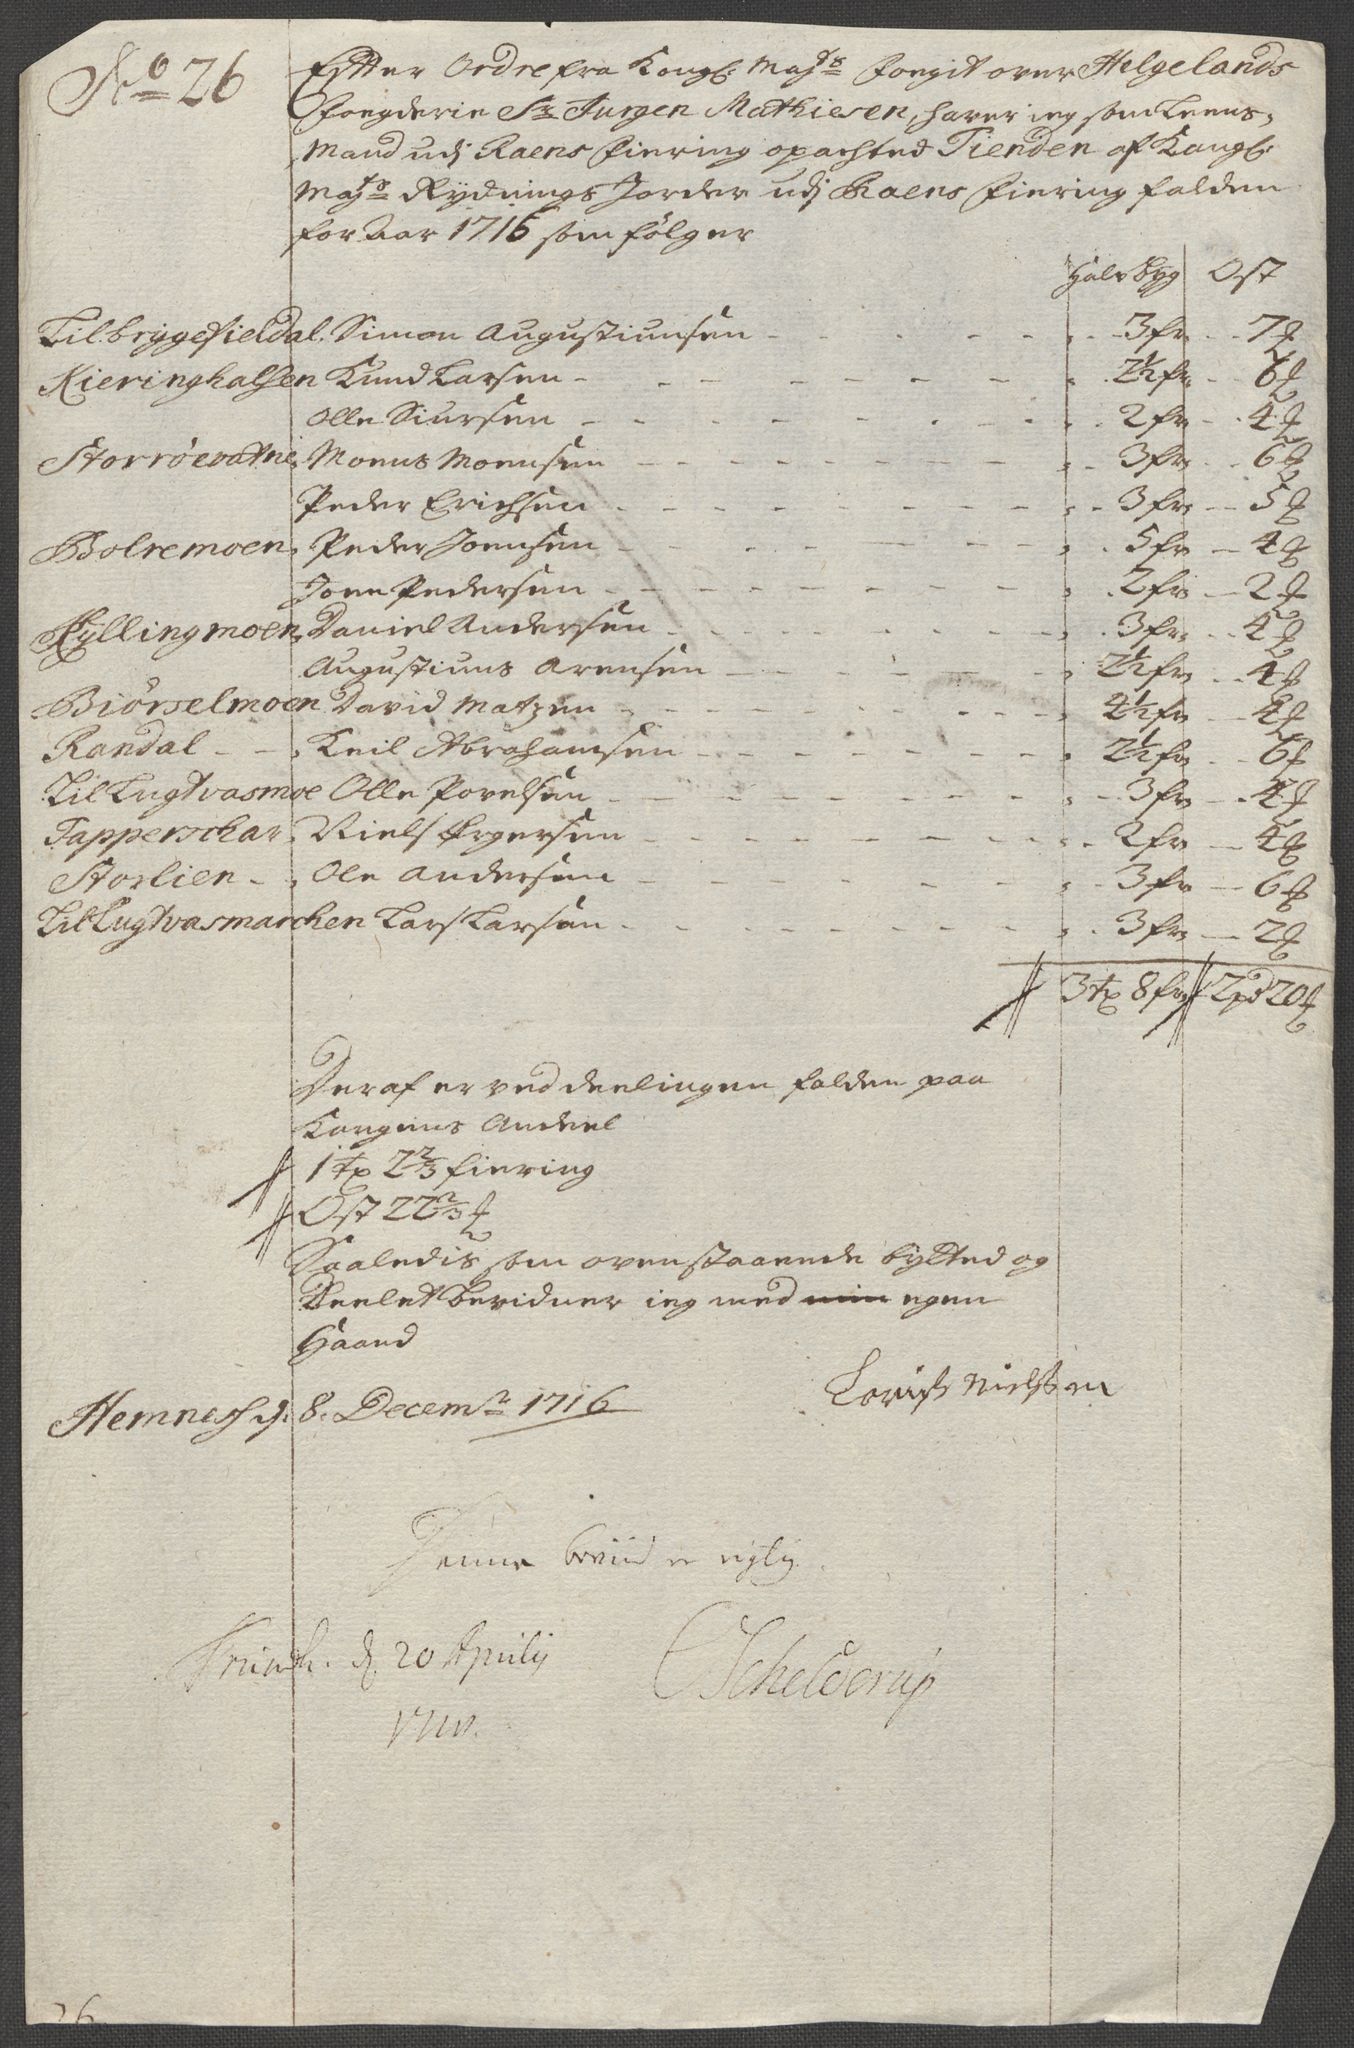 No 26
Efter Ordre fra Kongl: Majts Foegit over Helgelands
Foegderie Sr Jurgen Mathiesen, haver ieg som Leens-
Mand udj Raens Fiering opachted Tienden af Kongl:
Majts Rydnings Jorder udj Raens Fiering falden
for Aar 1716 som følger
Halv byg Ost
Lil bryggefieldal. Simon Augustiunsen - 3 fr - 7 ℔
Kieringhalsen Knud Larsen - 2½ fr - 6 ℔
Olle Siursen - 2 fr - 4 ℔
Storrøevatne, Moens Moensen - 3 fr - 6 ℔
Peder Erichsen - 3 fr - 5 ℔
Bolremoen, Peder Joensen - 5 fr - 4 ℔
Joen Pedersen - 2 fr - 2 ℔
Hyllingmoen, Daniel Andersen - 3 fr - 4 ℔
Augustiuns Arensen - 2½ fr - 4 ℔
Biørselmoen David Matzen - 4½ fr - 4 ℔
Randal - Keil Abrahamsen - 2½ fr - 6 ℔
Lil Lugtvasmoe Olle Povelsen - 3 fr - 4 ℔
Tapperschar, Niels Ergersen - 2 fr - 4 ℔
Storlien - Ole Andersen - 3 fr - 6 ℔
Lil Lugtvasmarchen Lars Larsen - 3 fr - 2 ℔
3 tr 8 fr 2 pd 20 ℔
Deraf er ved deelingen falden paa
Kongens Andeel
1 tr 2⅔ fiering
Ost 22⅔ ℔
Saaledis som ovenstaaende bytted og
Deelet bevidner ieg med min egen
Haand
Hemnes d: 8. Decemr 1716
Lorisz Nielsen
Denne beviis er rigtig.
Trundh. d. 20 Aprilij
1717.
Schelderup
26